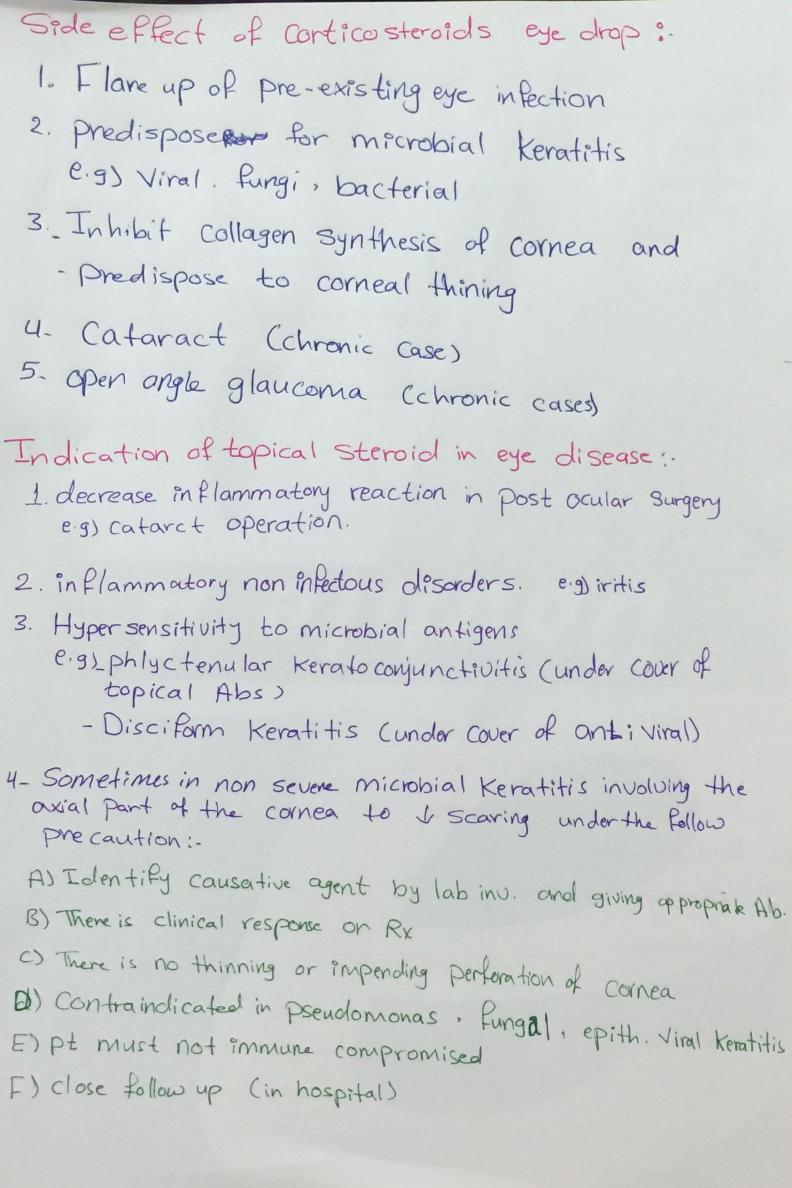 Side effect of corticosteroids eye drop :-
1. Flare up of pre-existing eye infection
2. predispose for microbial Keratitis
e.g) Viral, fungi, bacterial
3 - Inhibit collagen synthesis of cornea and
- predispose to corneal thining
4- Cataract (chronic case)
5- open angle glaucoma (chronic cases)
Indication of topical steroid in eye disease :-
1. decrease inflammatory reaction in post ocular surgery
e.g) catarct operation.
2. inflammatory non infectous disorders. e.g) iritis
3. Hypersensitivity to microbial antigens
e.g) - phlyctenular Keratoconjunctivitis (under cover of
topical Abs)
- Disciform Keratitis (under cover of anti viral)
4- Sometimes in non severe microbial Keratitis involving the
axial part of the cornea to ↓ scaring under the follow
precaution :-
A) Identify causative agent by lab inv. and giving appropriate Ab.
B) There is clinical response on Rx
C) There is no thinning or impending perforation of cornea
D) Contraindicated in pseudomonas, fungal, epith. viral keratitis
E) pt must not immune compromised
F) close follow up (in hospital)